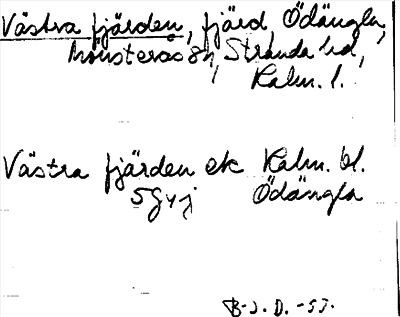 Västra fjärden, fjärd, Ödängla,
Mönsterås sn, Stranda hd,
Kalm. l.
Västra fjärden ek Kalm. bl.
5G4j Ödängla
B-J. D. -53.